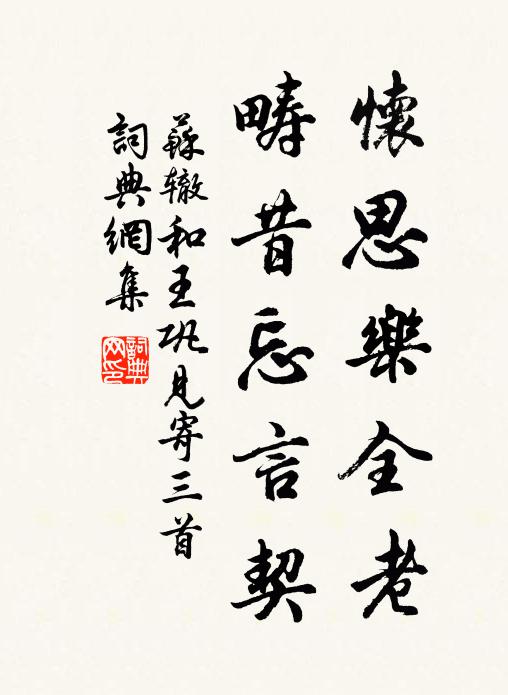 懷思樂全老
疇昔忘言契
蘇轍和王巩見寄三首
詞典網集
詞典網印